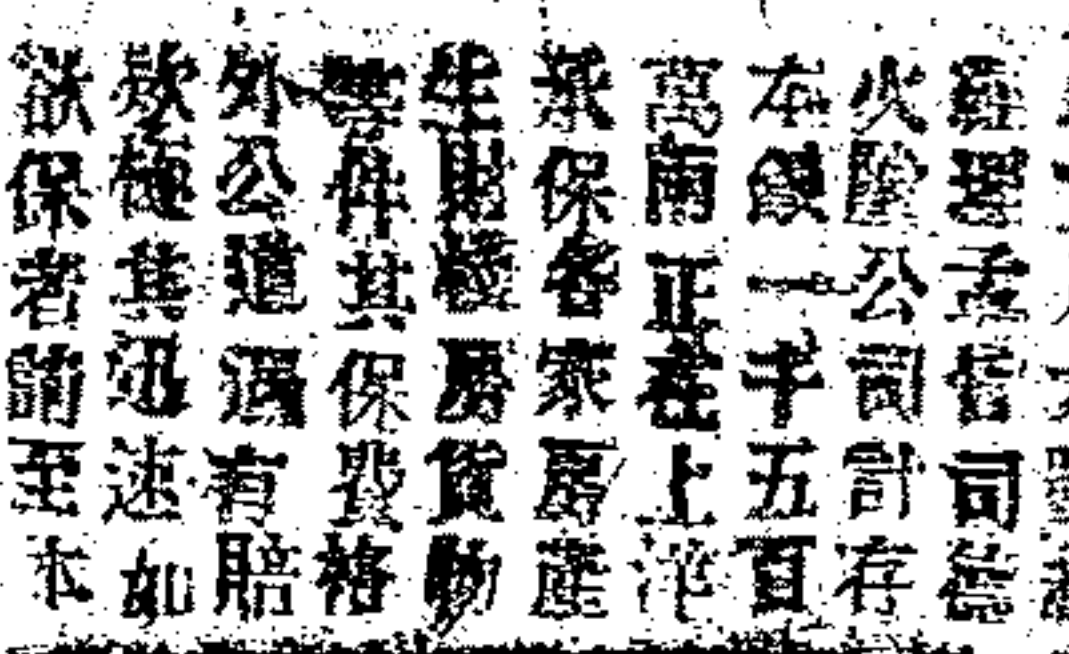 孟信司
火險公司計存
本銀一千五百
萬兩正在上洋
承保各家房產
生財棧房貨物
等件其保費格
外公道遇有賠
款随其迅速如
欲保者請至本